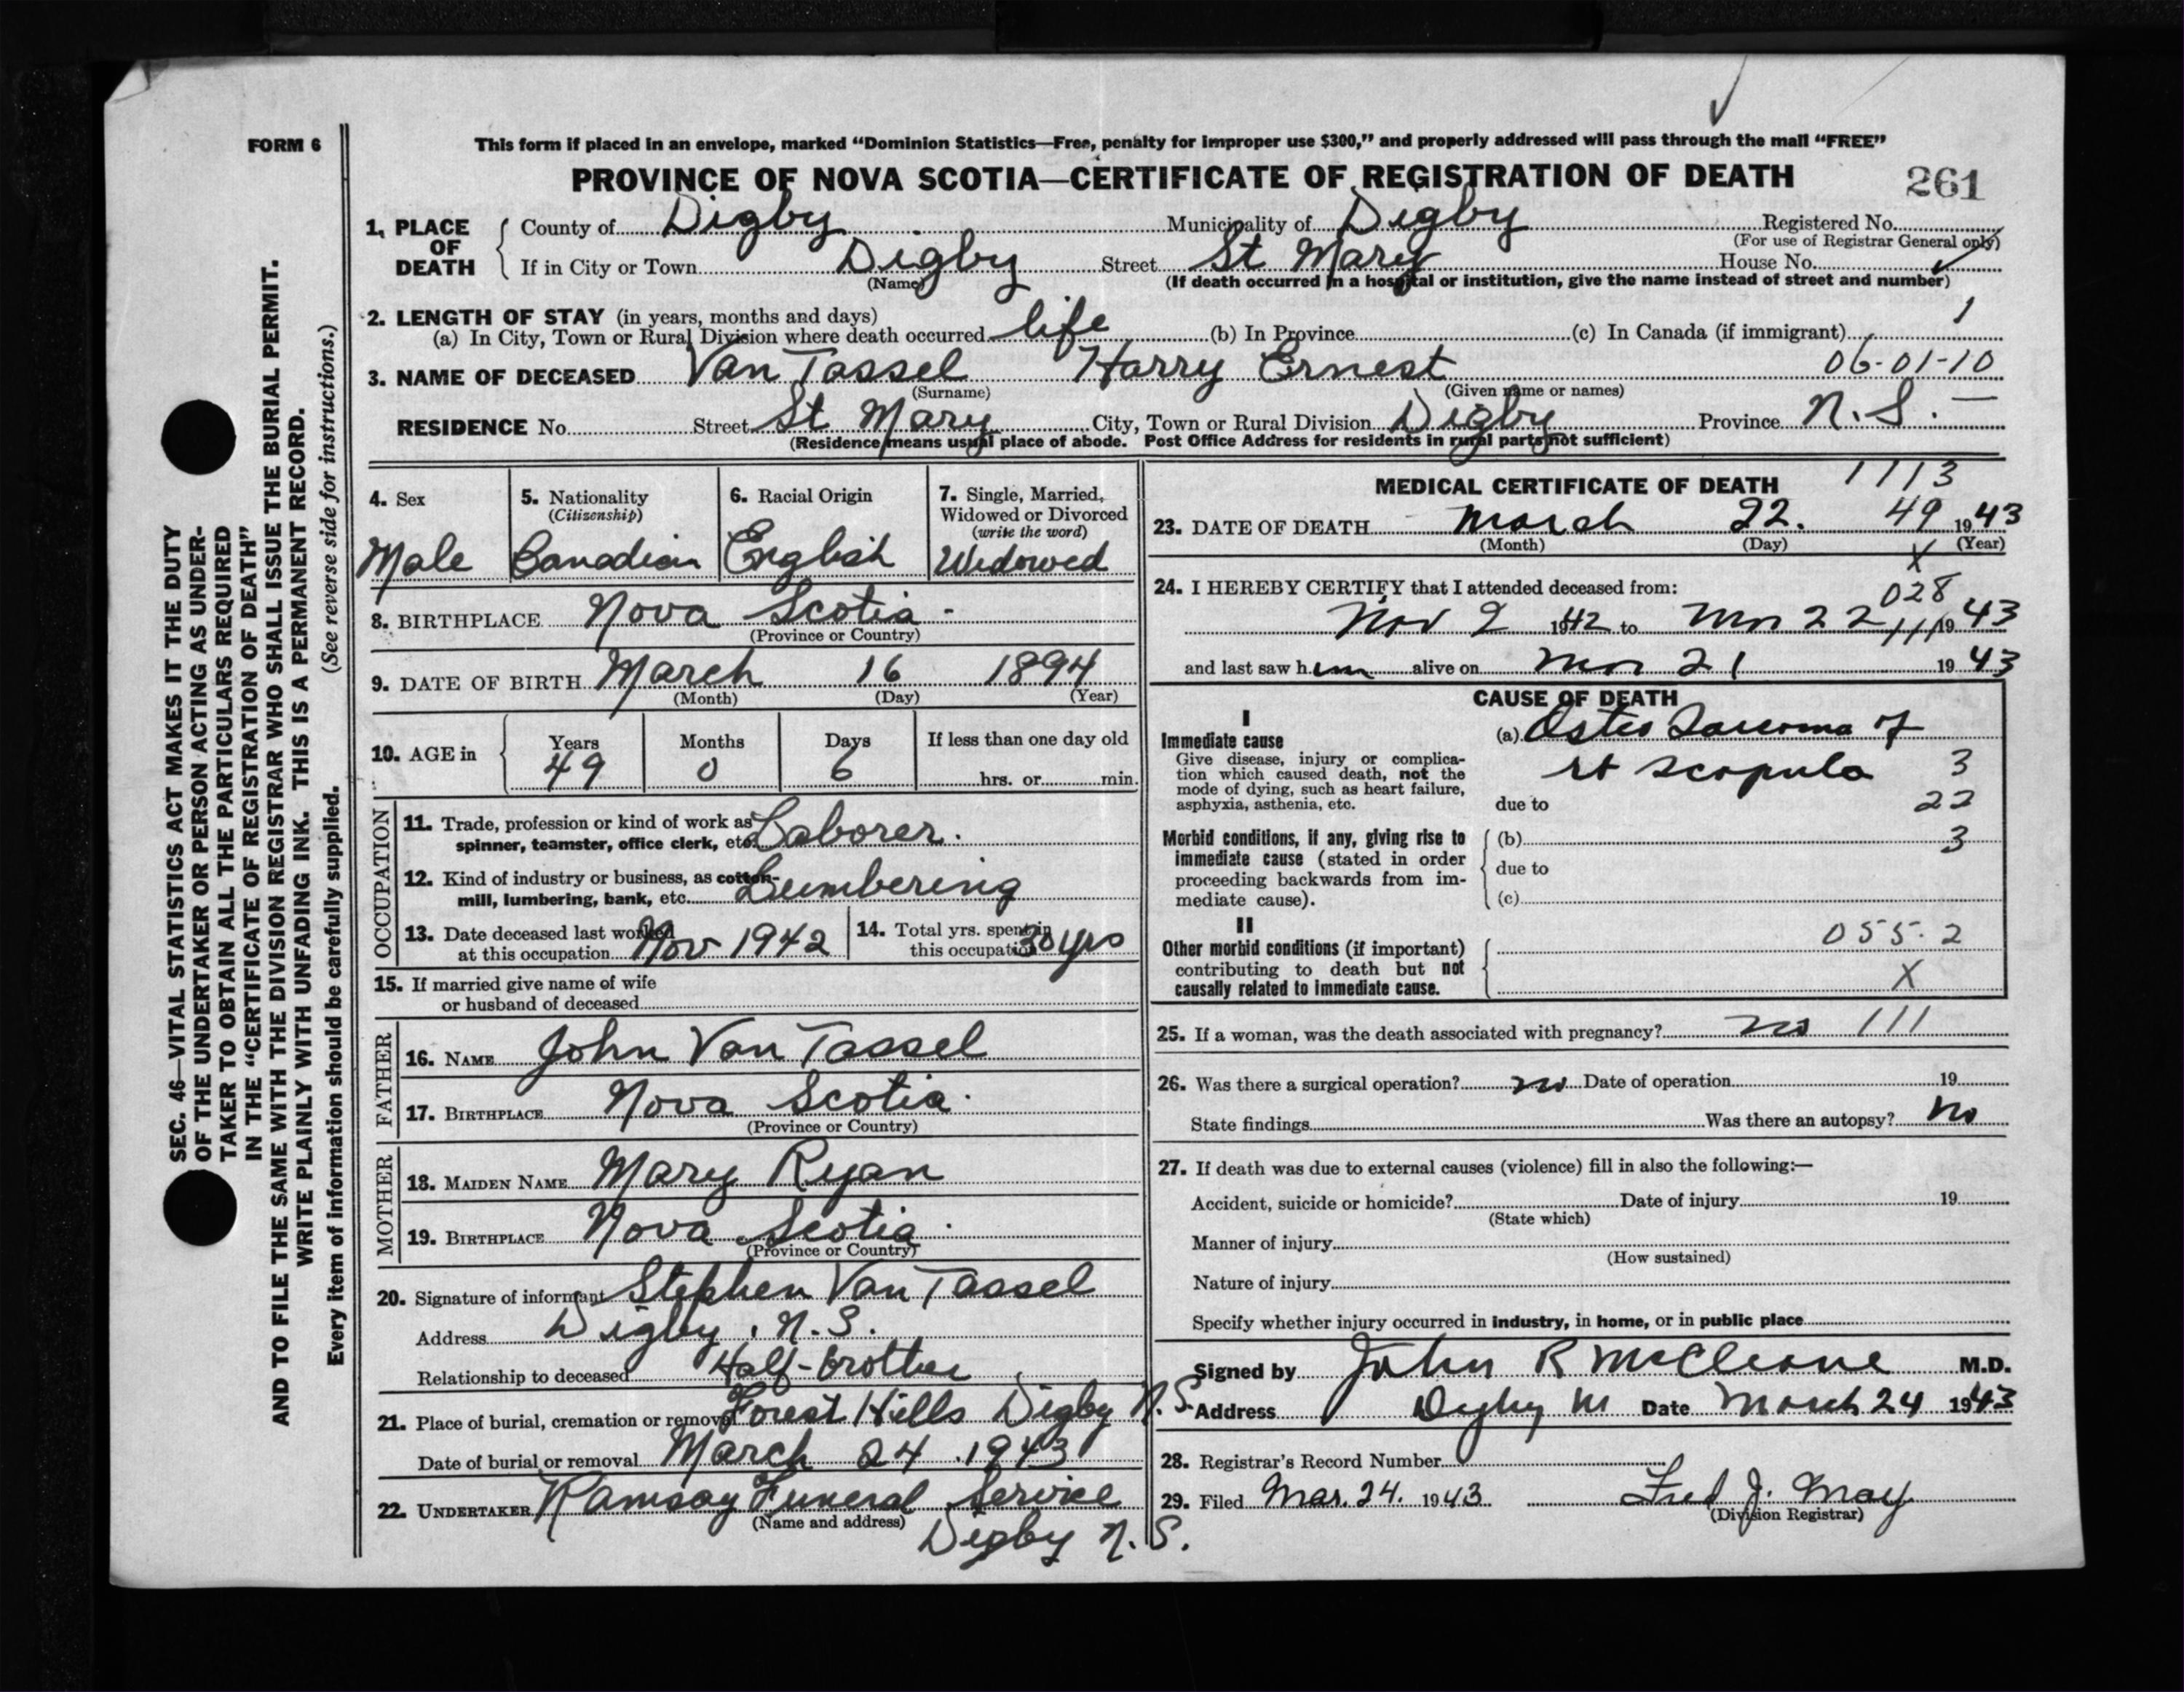 FORM 6
This form if placed in an envelope, marked “Dominion Statistics—Free, penalty for improper use $300,” and properly addressed will pass through the mail “FREE”
PROVINCE OF NOVA SCOTIA—CERTIFICATE OF REGISTRATION OF DEATH
261
1. PLACE OF DEATH
County of Digby Municipality of Digby Registered No.
(For use of Registrar General only)
If in City or Town Digby Street St Mary House No.
(Name) (If death occurred in a hospital or institution, give the name instead of street and number)
2. LENGTH OF STAY (in years, months and days) 1
(a) In City, Town or Rural Division where death occurred life (b) In Province (c) In Canada (if immigrant)
3. NAME OF DECEASED Van Tassel Harry Ernest 06-01-10
(Surname) (Given name or names)
RESIDENCE No. Street St Mary City, Town or Rural Division Digby Province N.S. —
(Residence means usual place of abode. Post Office Address for residents in rural parts not sufficient)
4. Sex
Male
5. Nationality
(Citizenship)
Canadian
6. Racial Origin
English
7. Single, Married, Widowed or Divorced
(write the word)
Widowed
8. BIRTHPLACE Nova Scotia -
(Province or Country)
9. DATE OF BIRTH March 16 1894
(Month) (Day) (Year)
10. AGE in Years Months Days If less than one day old
49 0 6 hrs. or min.
OCCUPATION
11. Trade, profession or kind of work as Laborer.
spinner, teamster, office clerk, etc.
12. Kind of industry or business, as cotton- Lumbering
mill, lumbering, bank, etc.
13. Date deceased last worked
at this occupation Nov 1942
14. Total yrs. spent in
this occupation 30 yrs
15. If married give name of wife
or husband of deceased
FATHER
16. NAME John Van Tassel
17. BIRTHPLACE Nova Scotia.
(Province or Country)
MOTHER
18. MAIDEN NAME Mary Ryan
19. BIRTHPLACE Nova Scotia.
(Province or Country)
20. Signature of informant Stephen Van Tassel
Address Digby, N.S.
Relationship to deceased Half-brother
21. Place of burial, cremation or removal Forest Hills Digby N.S.
Date of burial or removal March 24 . 1943
22. UNDERTAKER Ramsay Funeral Service
(Name and address)
Digby N.S.
MEDICAL CERTIFICATE OF DEATH 1113
23. DATE OF DEATH March 22. 49 1943
(Month) (Day) (Year)
X
24. I HEREBY CERTIFY that I attended deceased from:
028
Nov 2 1942 to Mar 22 111 1943
and last saw him alive on Mar 21 1943
CAUSE OF DEATH
I
Immediate cause
Give disease, injury or complica-
tion which caused death, not the
mode of dying, such as heart failure,
asphyxia, asthenia, etc.
(a) Osteo Sarcoma of
rt scapula 3
due to 22
Morbid conditions, if any, giving rise to
immediate cause (stated in order
proceeding backwards from im-
mediate cause).
(b) 3
due to
(c)
II
Other morbid conditions (if important)
contributing to death but not
causally related to immediate cause.
055.2
X
25. If a woman, was the death associated with pregnancy? no 111
26. Was there a surgical operation? no Date of operation 19
State findings Was there an autopsy? No
27. If death was due to external causes (violence) fill in also the following:—
Accident, suicide or homicide? Date of injury 19
(State which)
Manner of injury
(How sustained)
Nature of injury
Specify whether injury occurred in industry, in home, or in public place
Signed by John R McCleave M.D.
Address Digby Date March 24 1943
28. Registrar's Record Number
29. Filed Mar. 24. 1943 Fred J. May
(Division Registrar)
SEC. 46—VITAL STATISTICS ACT MAKES IT THE DUTY
OF THE UNDERTAKER OR PERSON ACTING AS UNDER-
TAKER TO OBTAIN ALL THE PARTICULARS REQUIRED
IN THE “CERTIFICATE OF REGISTRATION OF DEATH”
AND TO FILE THE SAME WITH THE DIVISION REGISTRAR WHO SHALL ISSUE THE BURIAL PERMIT.
WRITE PLAINLY WITH UNFADING INK. THIS IS A PERMANENT RECORD.
Every item of information should be carefully supplied. (See reverse side for instructions.)